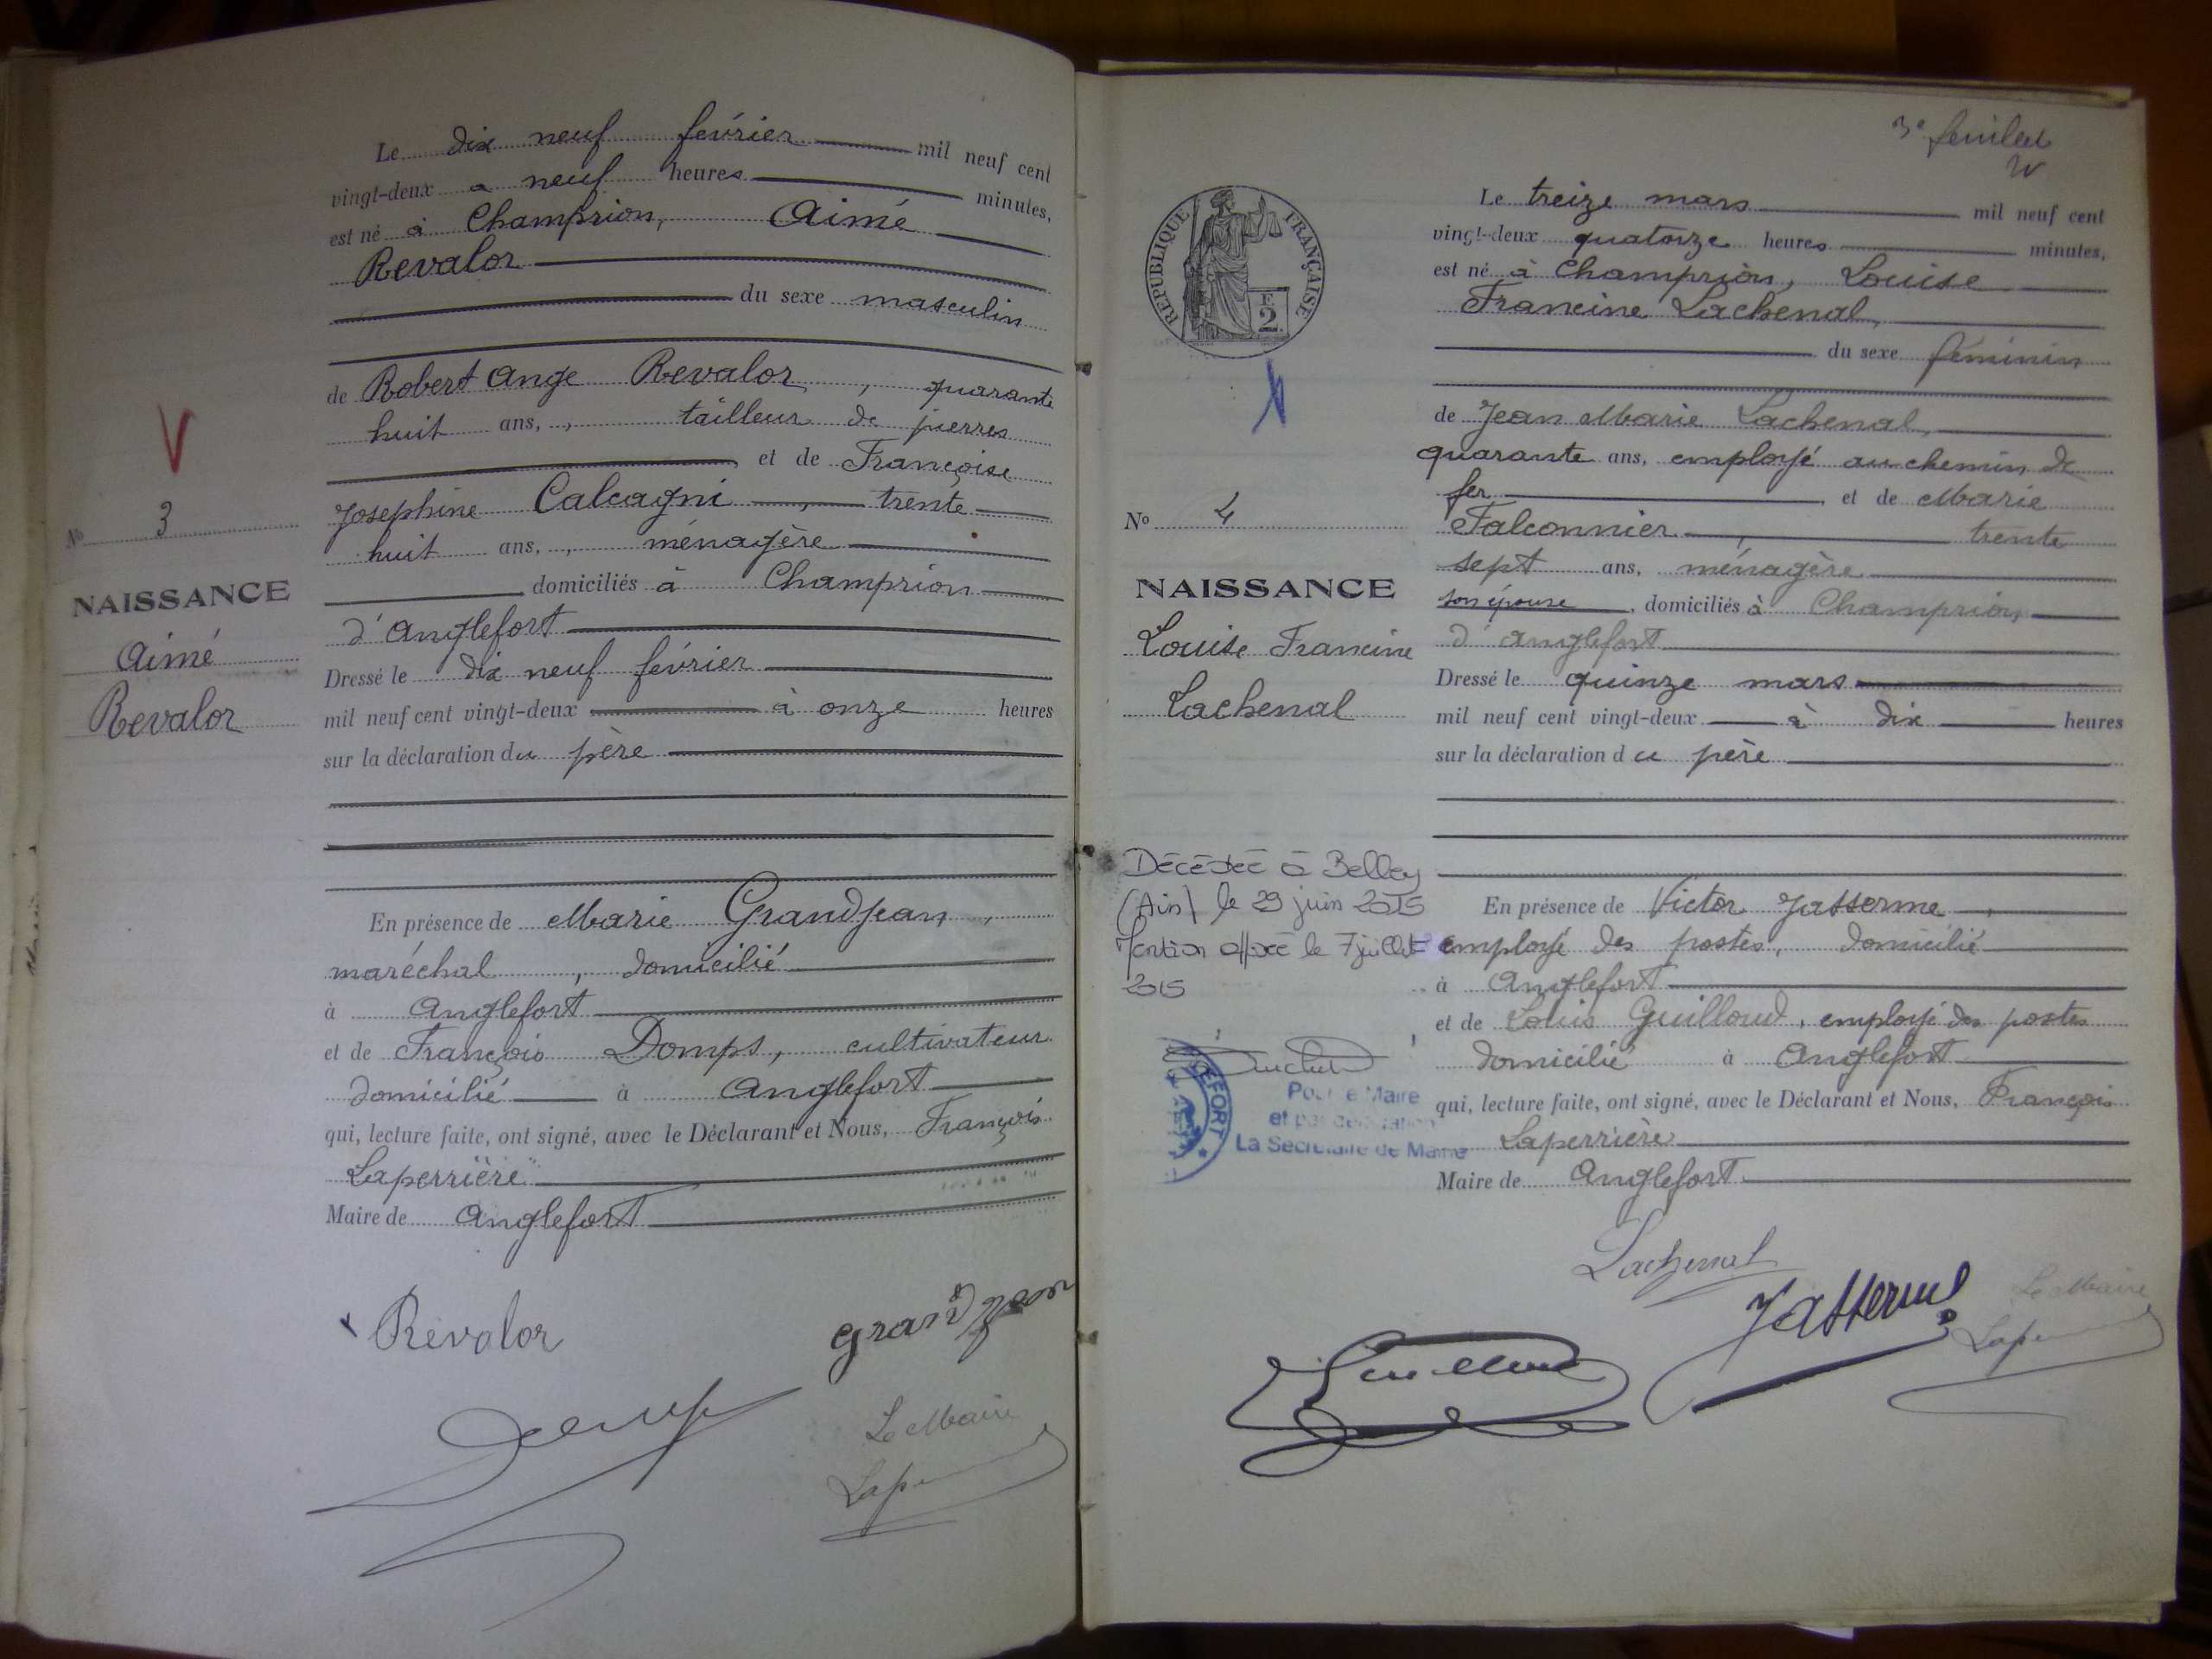 Le dix neuf février mil neuf cent
vingt-deux à neuf heures minutes,
est né à Champrion, Aimé
Revalor
du sexe masculin
de Robert Ange Revalor, quarante
huit ans, tailleur de pierres
et de Françoise
Josephine Calcagni, trente
huit ans, ménagère
domiciliés à Champrion
d'Anglefort
Dressé le dix neuf février
mil neuf cent vingt-deux à onze heures
sur la déclaration du père
En présence de Marie Grandjean,
maréchal, domicilié
à Anglefort
et de François Domps, cultivateur
domicilié à Anglefort
qui, lecture faite, ont signé, avec le Déclarant et Nous, François
Laperrière
Maire de Anglefort
Revalor
Grandjean
Le Maire
N° 3
NAISSANCE
Aimé
Revalor
3e feuillet
REPUBLIQUE FRANÇAISE
F.
2
Le treize mars mil neuf cent
vingt-deux quatorze heures minutes,
est né à Champrion, Louise
Francine Lachenal,
du sexe féminin
de Jean Marie Lachenal,
quarante ans, employé au chemin de
fer et de Marie
Falconnier, trente
sept ans, ménagère
son épouse, domiciliés à Champrion
d'Anglefort
Dressé le quinze mars
mil neuf cent vingt-deux à dix heures
sur la déclaration du père
En présence de Victor Jasserme,
employé des postes, domicilié
à Anglefort
et de Louis Guilloud, employé des postes
domicilié à Anglefort
qui, lecture faite, ont signé, avec le Déclarant et Nous, François
Laperrière
Maire de Anglefort
Lachenal
Jasserme
Guilloud
Le Maire
N° 4
NAISSANCE
Louise Francine
Lachenal
Décédée à Belley
(Ain) le 29 juin 2015
Mention apposée le 7 juillet
2015
Pour le Maire
et par délégation
La Secrétaire de Mairie